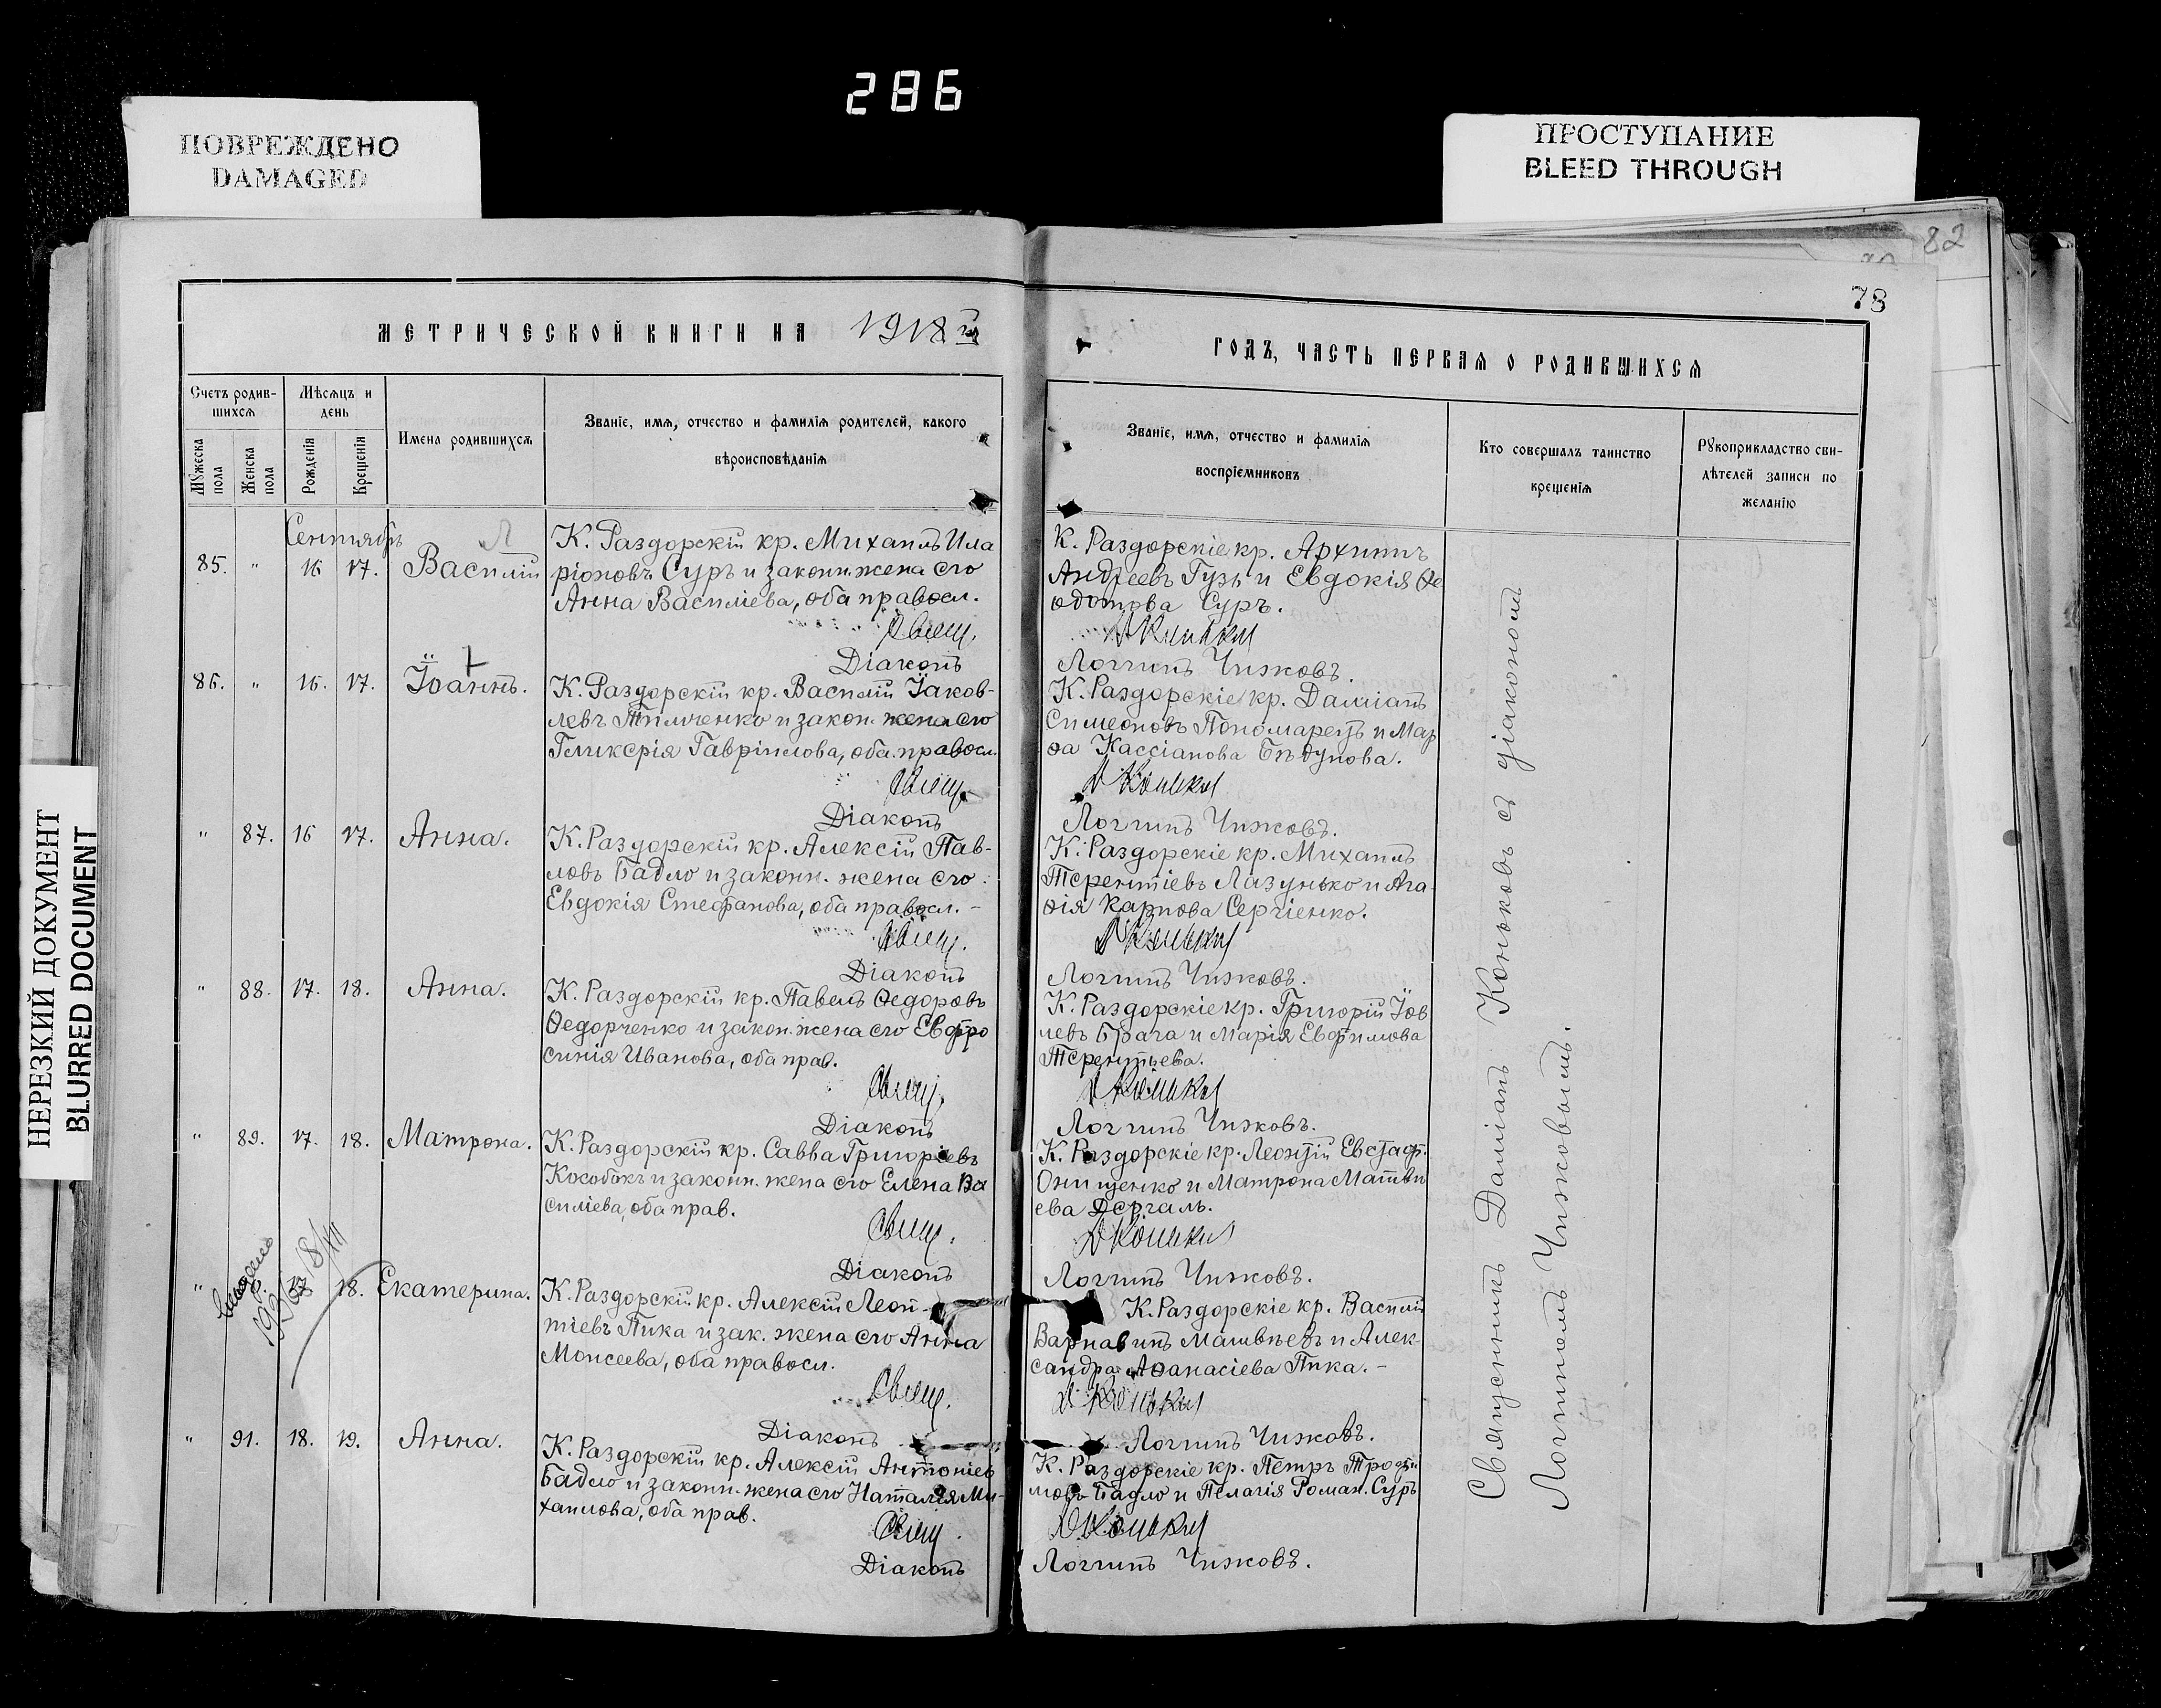 286
ПОВРЕЖДЕНО
DAMAGED
ПРОСТУПАНИЕ
BLEED THROUGH
НЕРЕЗКИЙ ДОКУМЕНТ
BLURRED DOCUMENT
82
78
МЕТРИЧЕСКОЙ КНИГИ НА 1918 й
ГОДЪ, ЧАСТЬ ПЕРВАЯ О РОДИВШИХСЯ
Счетъ родив-
шихся
Мѣсяцъ и
день
Мужеска
пола
Женска
пола
Рожденія
Крещенія
Имена родившихся
Званіе, имя, отчество и фамилія родителей, какого
вѣроисповѣданія
Званіе, имя, отчество и фамилія
воспріемниковъ
Кто совершалъ таинство
крещенія
Рукоприкладство сви-
дѣтелей записи по
желанію
Сентябрь
85. " 16 17. Василій
К. Раздорскій кр. Михаилъ Ила
ріоновъ Суръ и законн. жена его
Анна Василіева, оба правосл.
Свящ.
Діаконъ
К. Раздорскіе кр. Архиппъ
Андреевъ Гузь и Евдокія Ѳе
одотова Суръ.
Д Коньков
Логгинъ Чижковъ.
86. " 16. 17. Іоаннъ.
К. Раздорскій кр. Василій Іаков-
левъ Тимченко и закон. жена его
Гликерія Гавріилова, оба правосл.
Свящ.
Діаконъ
К. Раздорскіе кр. Даміанъ
Симеоновъ Пономарецъ и Мар
ѳа Кассіанова Бѣдунова.
Д Коньков
Логгинъ Чижковъ.
" 87. 16 17. Анна.
К. Раздорскій кр. Алексій Пав-
ловъ Бадло и законн. жена его
Евдокія Стефанова, оба правосл. -
Свящ.
Діаконъ
К. Раздорскіе кр. Михаилъ
Терентіевъ Лазунько и Ага
ѳія Карпова Сергіенко.
Д Коньков
Логгинъ Чижковъ.
" 88. 17. 18. Анна.
К. Раздорскій кр. Павелъ Ѳедоровъ
Ѳедорченко и закон. жена его Евфро
синія Иванова, оба прав.
Свящ.
Діаконъ
К. Раздорскіе кр. Григорій Іов
левъ Брага и Марія Евфимова
Терентьева.
Д Коньков
Логгинъ Чижковъ.
" 89. 17. 18. Матрона.
К. Раздорскій кр. Савва Григоріевъ
Кособокъ и законн. жена его Елена Ва
силіева, оба прав.
Свящ.
Діаконъ
К. Раздорскіе кр. Леонтій Евстаф.
Онищенко и Матрона Матвѣ
ева Дергаль.
Д Коньков
Логгинъ Чижковъ.
" 17 18. Екатерина.
К. Раздорскій кр. Алексій Леон-
тіевъ Пика и зак. жена его Анна
Моисеева, оба правосл.
Свящ.
Діаконъ
К. Раздорскіе кр. Василій
Варнавинъ Матвѣевъ и Алек-
сандра Аѳанасіева Пика. -
Д Коньков
Логгинъ Чижковъ.
" 91. 18. 19. Анна.
К. Раздорскій кр. Алексій Антоніев
Бадло и законн. жена его Наталія Ми-
хаилова, оба прав.
Свящ.
Діаконъ
К. Раздорскіе кр. Петръ Трофи
мовъ Бадло и Пелагія Роман. Суръ
Д Коньков
Логгинъ Чижковъ.
Священникъ Даміанъ Коньковъ съ діакономъ
Логгиномъ Чижковымъ.